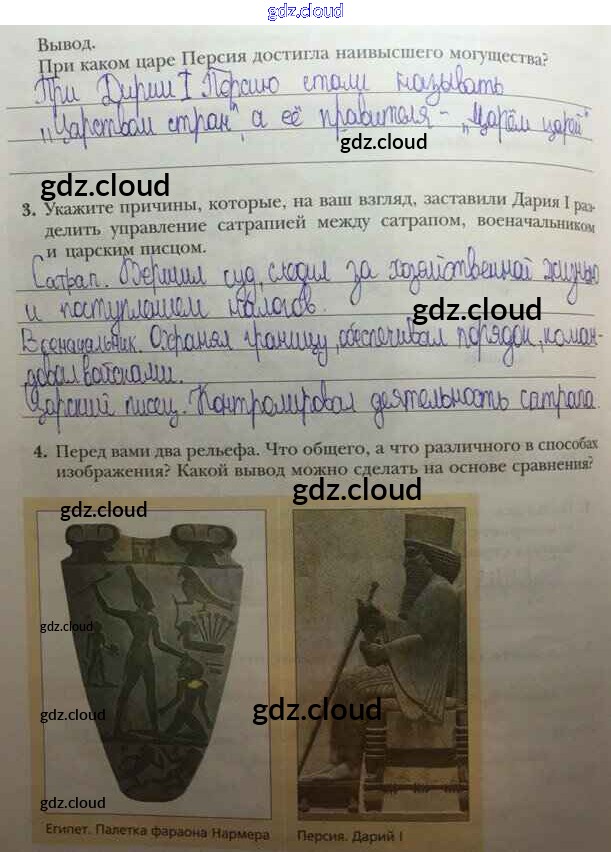 gdz.cloud
Вывод.
При каком царе Персия достигла наивысшего могущества?
При Дарии I Персию стали называть
„Царством стран", а её правителя - „Царём царей"
gdz.cloud
gdz.cloud
3. Укажите причины, которые, на ваш взгляд, заставили Дария I раз-
делить управление сатрапией между сатрапом, военачальником
и царским писцом.
Сатрап. Вершил суд, следил за хозяйственной жизнью
и поступлением налогов.
gdz.cloud
Военачальник. Охранял границу, обеспечивал порядок, коман-
довал войсками.
Царский писец. Контролировал деятельность сатрапа.
4. Перед вами два рельефа. Что общего, а что различного в способах
изображения? Какой вывод можно сделать на основе сравнения?
gdz.cloud
gdz.cloud
gdz.cloud
gdz.cloud
gdz.cloud
gdz.cloud
Египет. Палетка фараона Нармера
Персия. Дарий I